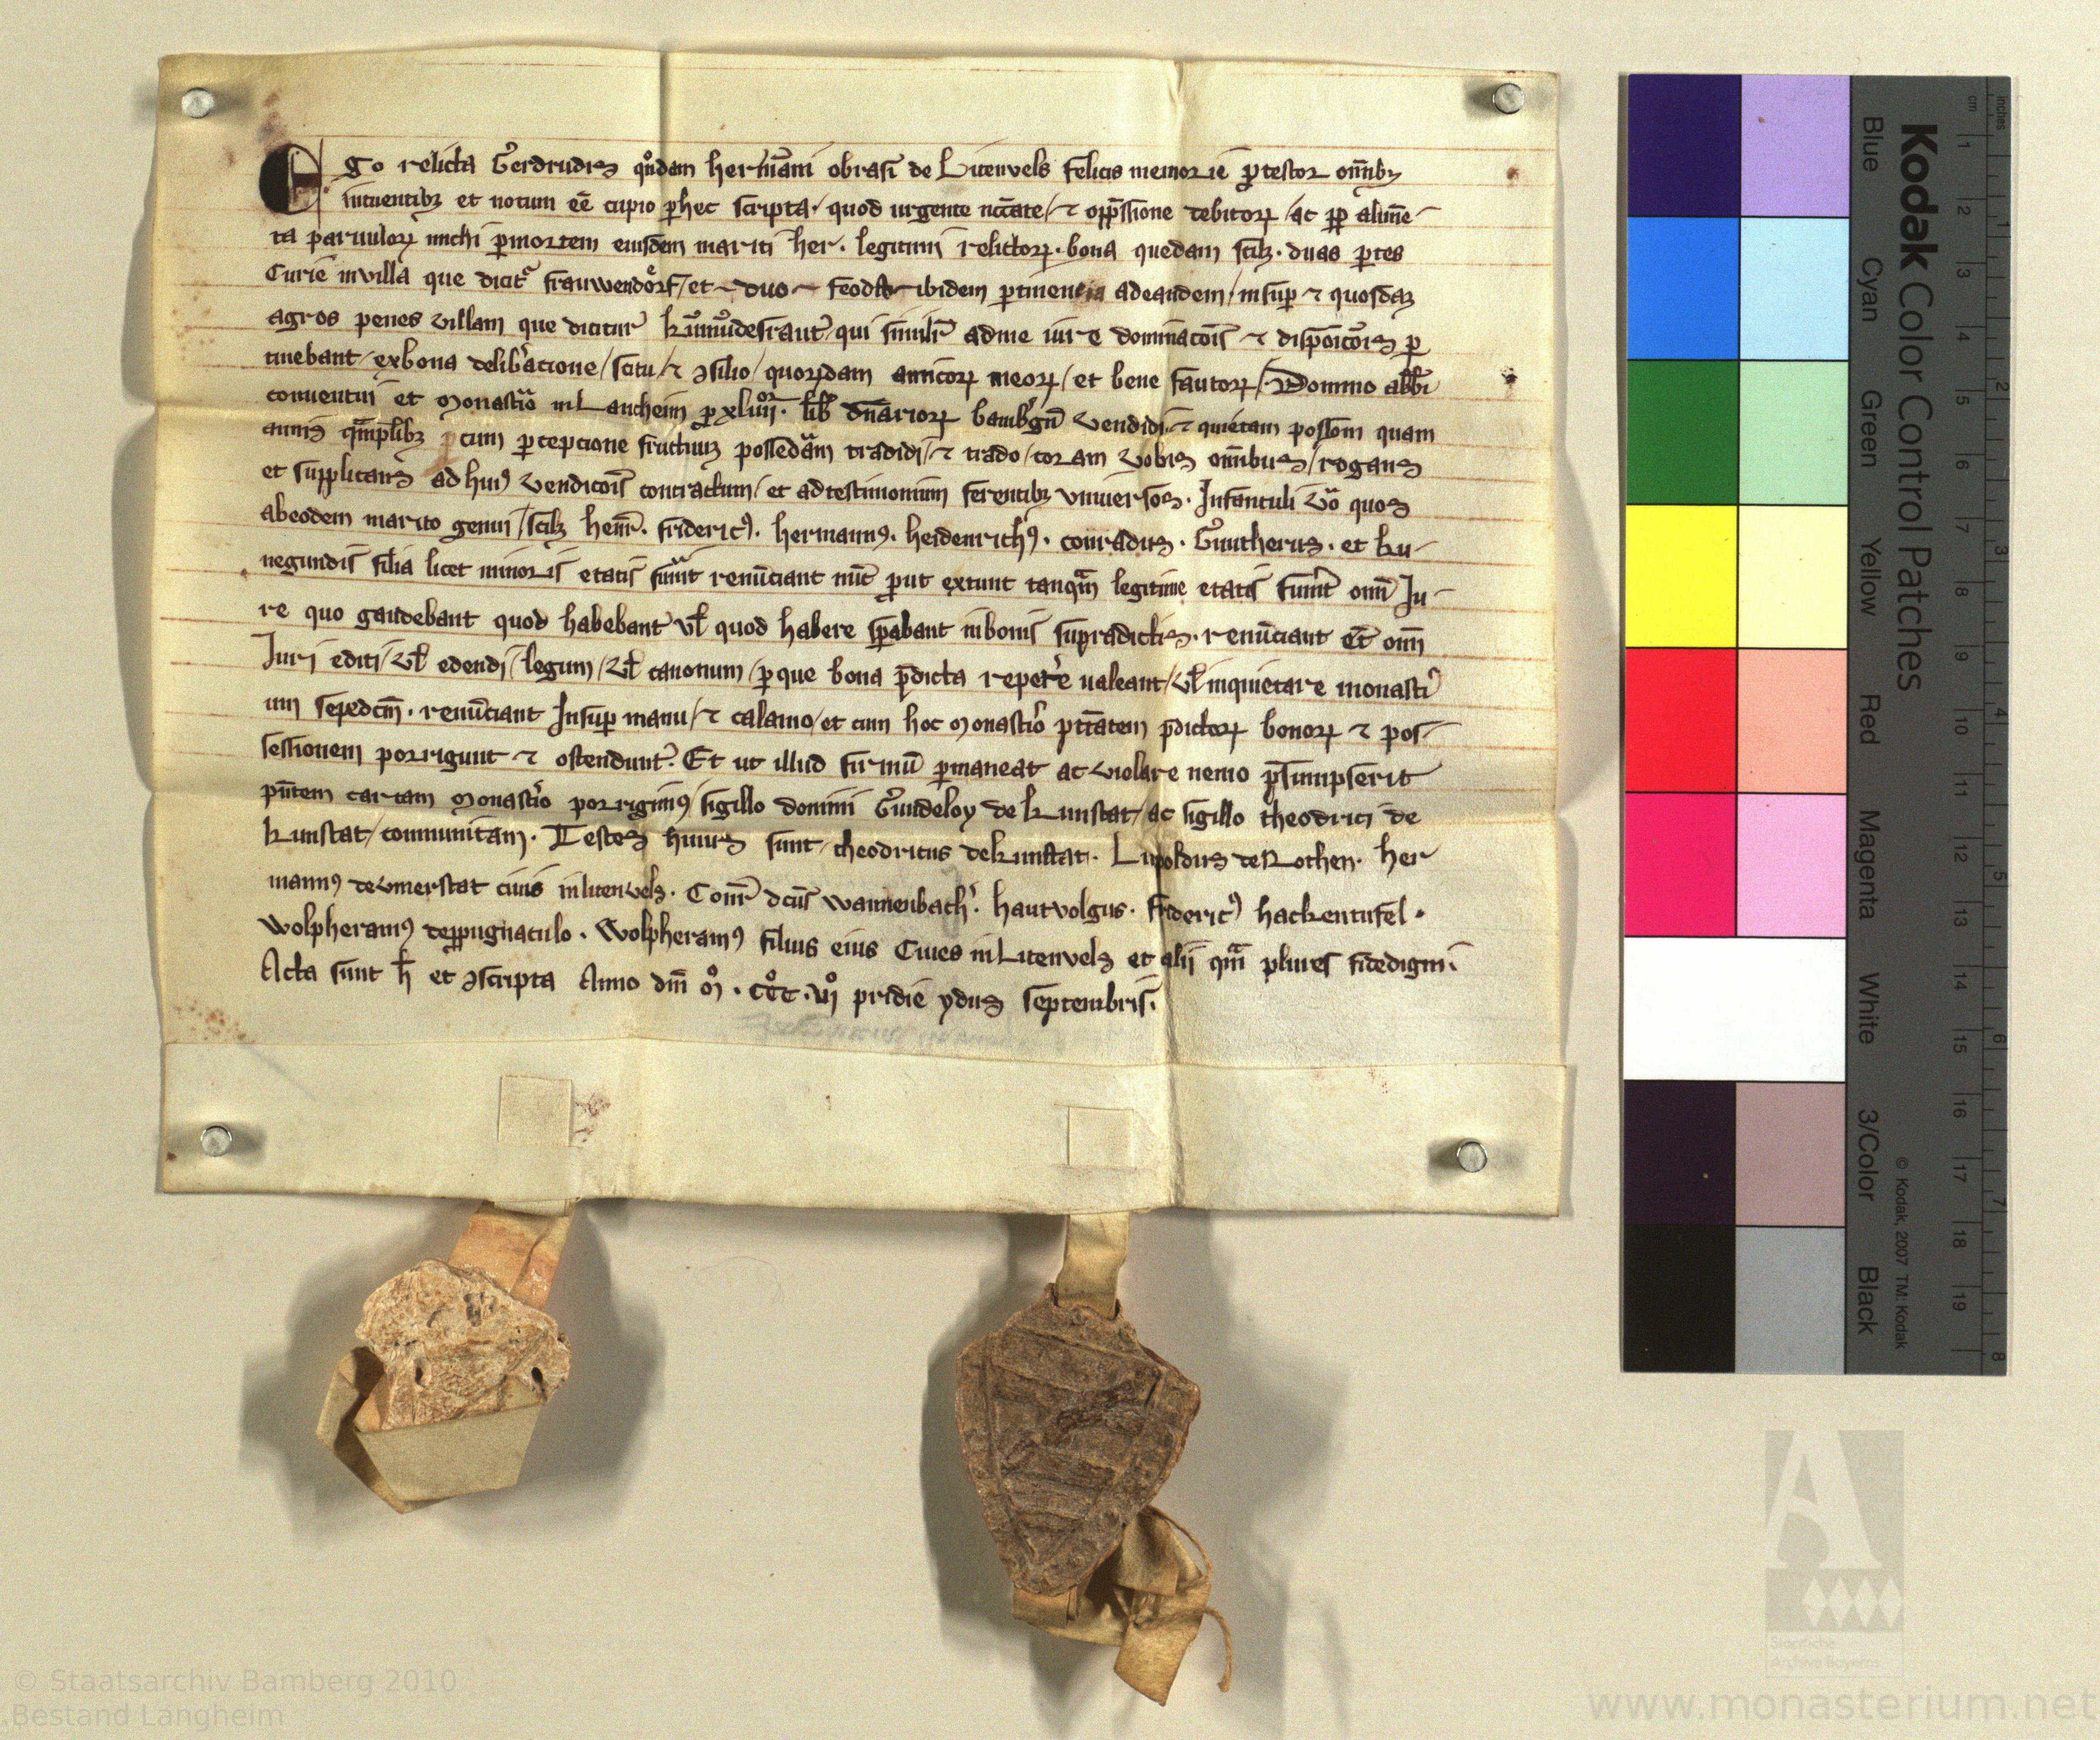 Ego relicta Gerdrudis qͦndam herma̅ni obrasi̅ de Litenvels felicis memorie ꝓtestor om̅ibꝫ
intuentibꝫ et notum ee̅ cupio ꝑ hec scripta. quod urgente nccate̅/ ⁊ opp̅ssione debitoꝝ/ ac ꝓp̱ alime-
ta paruuloꝝ michi ꝑ mortem eiusdem mariti her. legitimi relictoꝝ. bona quedam scilꝫ. duas ꝑtes
Curie in villa que dicit᷑ frauwendorf/ et duo feoda ibidem ꝑtinencia ad eandem/ insuꝑ ⁊ quosdaꝫ
agros penes villam que dicitur ku̅mu̅desraut/ qui simili̅r ad me iure dominaco̅is ⁊ disposico̅is ꝑ
tinebant/ ex bona delib̅acione/ scitu/ ⁊ ɔsilio/ quoꝝdam amicoꝝ meoꝝ/ et bene fautoꝝ/ Domino abb̅i
conuentui et monast̅io in Lancheim ꝓ xliiij. lib̅ d̅narioꝝ bamb̅gn̅ vendidi. ⁊ quietam poss̅om quam
annis qͣmpl̅ibꝫ cum ꝑcepcione fructuuꝫ possedam̅ tradidi/ ⁊ trado/ coram vobis om̅ibus/ rogans
et supplicans ad huiꝰ vendico̅is contractum/ et ad testimonium ferentibꝫ vniuersos. Infantuli vͦ quos
ab eodem marito genui/ scilꝫ henr̅. fridericꝰ. hermannꝰ. heidenrichꝰ. conradus. Guntherus. et ku-
negundis filia licet minoris etatis sunt renu̅ciant nu̅c ꝓut extunt tanqͣm legitime etatis fuint̅ om̅i Ju-
re quo gaudebant quod habebant vl̅ quod habere sp̅abant in bonis supradictis. renu̅ciant et̅ om̅i
Iuri editi/ vl̅ edendi/ legum/ vl̅ canonum/ ꝑ que bona p̅dicta repete̅ ualeant/ vl̅ inquietare monast̅i
um sepedc̅m. renu̅ciant Insuꝑ manu/ ⁊ calamo/ et cum hoc monast̅io ꝓp̅tatem p̅dictoꝝ bonoꝝ ⁊ pos-
sessionem porrigunt ⁊ ostendunt. Et ut illud firmu̅ ꝑmaneat ac violare nemo p̅sumpserit
pn̅tem cartam monast̅io porrigimꝰ/ sigillo domini Gundeloy de kunstat/ ac sigillo theodrici de
kunstat/ communitam. Testes huius sunt/ theodricus de kunstat. Lupoldus de Rothen. her
mannꝰ de vmerstat ciuis in litenvels. Conr̅ dcu̅s wannenbach. hautvolgus. fridericꝰ hackentufel.
Wolpheramꝰ de ꝓpugnaculo. Wolpheramꝰ filius eius Ciues in Litenvels et alij qͣm plures fidedigni.
Acta sunt h̅ et ɔscripta Anno dn̅i mͦ. cͦcͦcͦ. vijͦ pridie ydus septembris.
Kodak Color Control Patches
Blue Cyan Green Yellow Red Magenta White 3/Color Black
© Kodak, 2007 TM: Kodak
cm 1 2 3 4 5 6 7 8 9 10 11 12 13 14 15 16 17 18 19
inches 1 2 3 4 5 6 7 8
Staatliche
Archive Bayerns
© Staatsarchiv Bamberg 2010
Bestand Langheim
www.monasterium.net